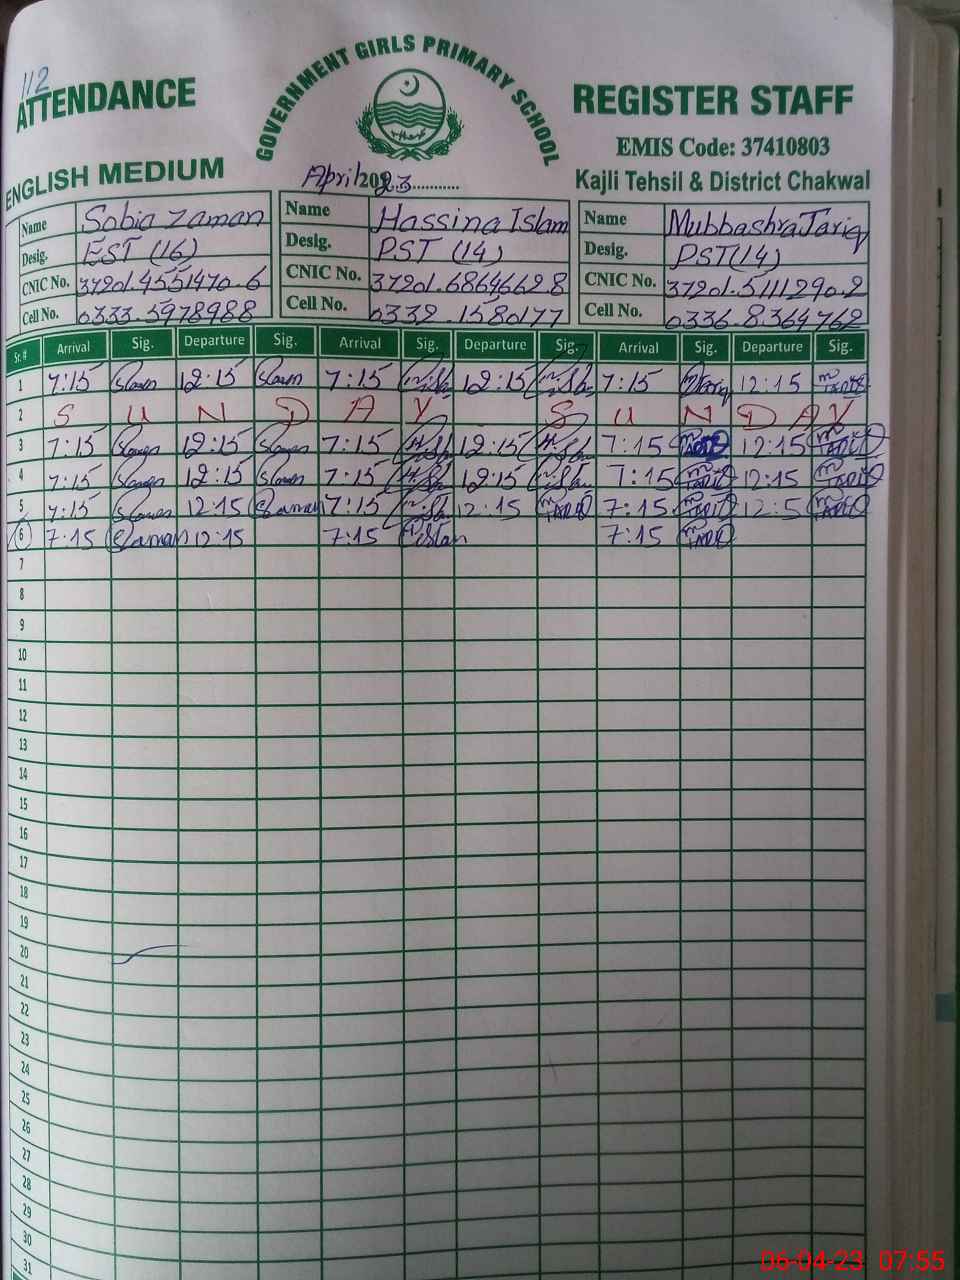 112
ATTENDANCE
GOVERNMENT GIRLS PRIMARY SCHOOL
REGISTER STAFF
EMIS Code: 37410803
ENGLISH MEDIUM
April 2023............
Kajli Tehsil & District Chakwal
Name Sobia Zaman Name Hassina Islam Name Mubbashra Tariq
Desig. EST (16) Desig. PST (14) Desig. PST (14)
CNIC No. 37201.4551470.6 CNIC No. 37201.6864662 8 CNIC No. 37201.5111290.2
Cell No. 0333.5978988 Cell No. 0332.1580177 Cell No. 0336.8364762
Sr. # Arrival Sig. Departure Sig. Arrival Sig. Departure Sig. Arrival Sig. Departure Sig.
1 7:15 12:15 7:15 12:15 7:15 12:15
2 S U N D A Y S U N D A Y
3 7:15 12:15 7:15 12:15 7:15 12:15
4 7:15 12:15 7:15 12:15 7:15 12:15
5 7:15 12:15 Zaman 7:15 12:15 7:15 12:5
6 7:15 Zaman 12:15 7:15 7:15
7
8
9
10
11
12
13
14
15
16
17
18
19
20
21
22
23
24
25
26
27
28
29
30
31
06-04-23 07:55